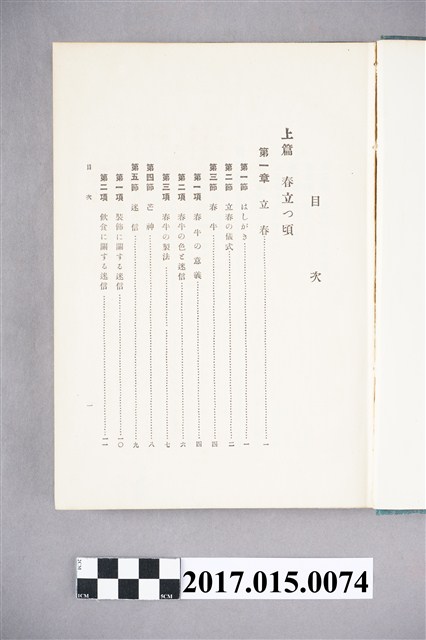 目次
上篇 春立つ頃
第一章 立春……一
第一節 はしがき……一
第二節 立春の儀式……二
第三節 春牛……四
第一項 春牛の意義……四
第二項 春牛の色と迷信……六
第三項 春牛の製法……七
第四節 芒神……八
第五節 迷信……九
第一項 裝飾に關する迷信……一〇
第二項 飲食に關する迷信……一一
目次 一
2CM
1CM
5CM
2017.015.0074